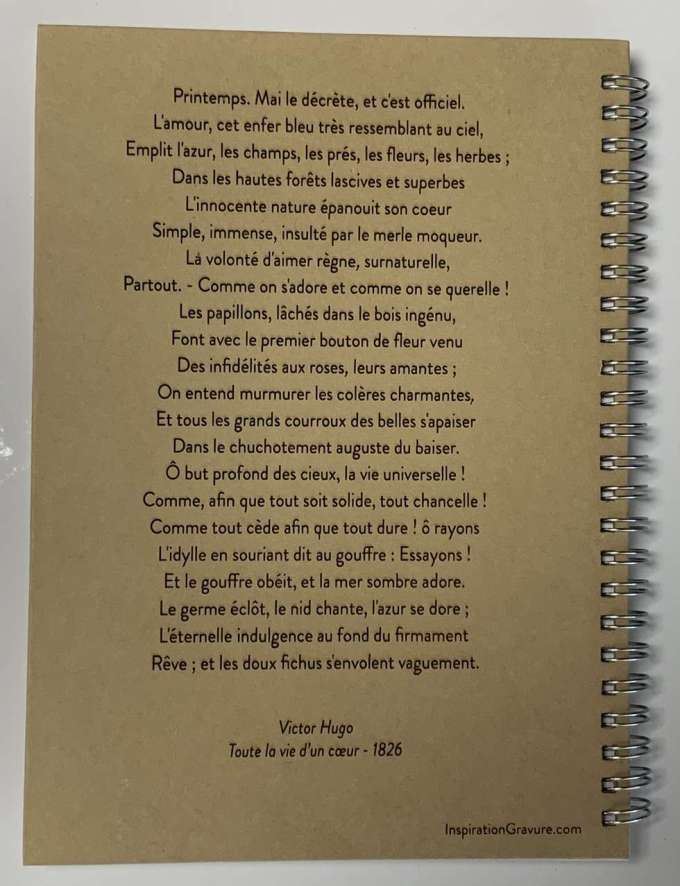 Printemps. Mai le décrète, et c'est officiel.
L'amour, cet enfer bleu très ressemblant au ciel,
Emplit l'azur, les champs, les prés, les fleurs, les herbes ;
Dans les hautes forêts lascives et superbes
L'innocente nature épanouit son coeur
Simple, immense, insulté par le merle moqueur.
Là volonté d'aimer règne, surnaturelle,
Partout. - Comme on s'adore et comme on se querelle !
Les papillons, lâchés dans le bois ingénu,
Font avec le premier bouton de fleur venu
Des infidélités aux roses, leurs amantes ;
On entend murmurer les colères charmantes,
Et tous les grands courroux des belles s'apaiser
Dans le chuchotement auguste du baiser.
Ô but profond des cieux, la vie universelle !
Comme, afin que tout soit solide, tout chancelle !
Comme tout cède afin que tout dure ! ô rayons
L'idylle en souriant dit au gouffre : Essayons !
Et le gouffre obéit, et la mer sombre adore.
Le germe éclôt, le nid chante, l'azur se dore ;
L'éternelle indulgence au fond du firmament
Rêve ; et les doux fichus s'envolent vaguement.
Victor Hugo
Toute la vie d'un cœur - 1826
InspirationGravure.com